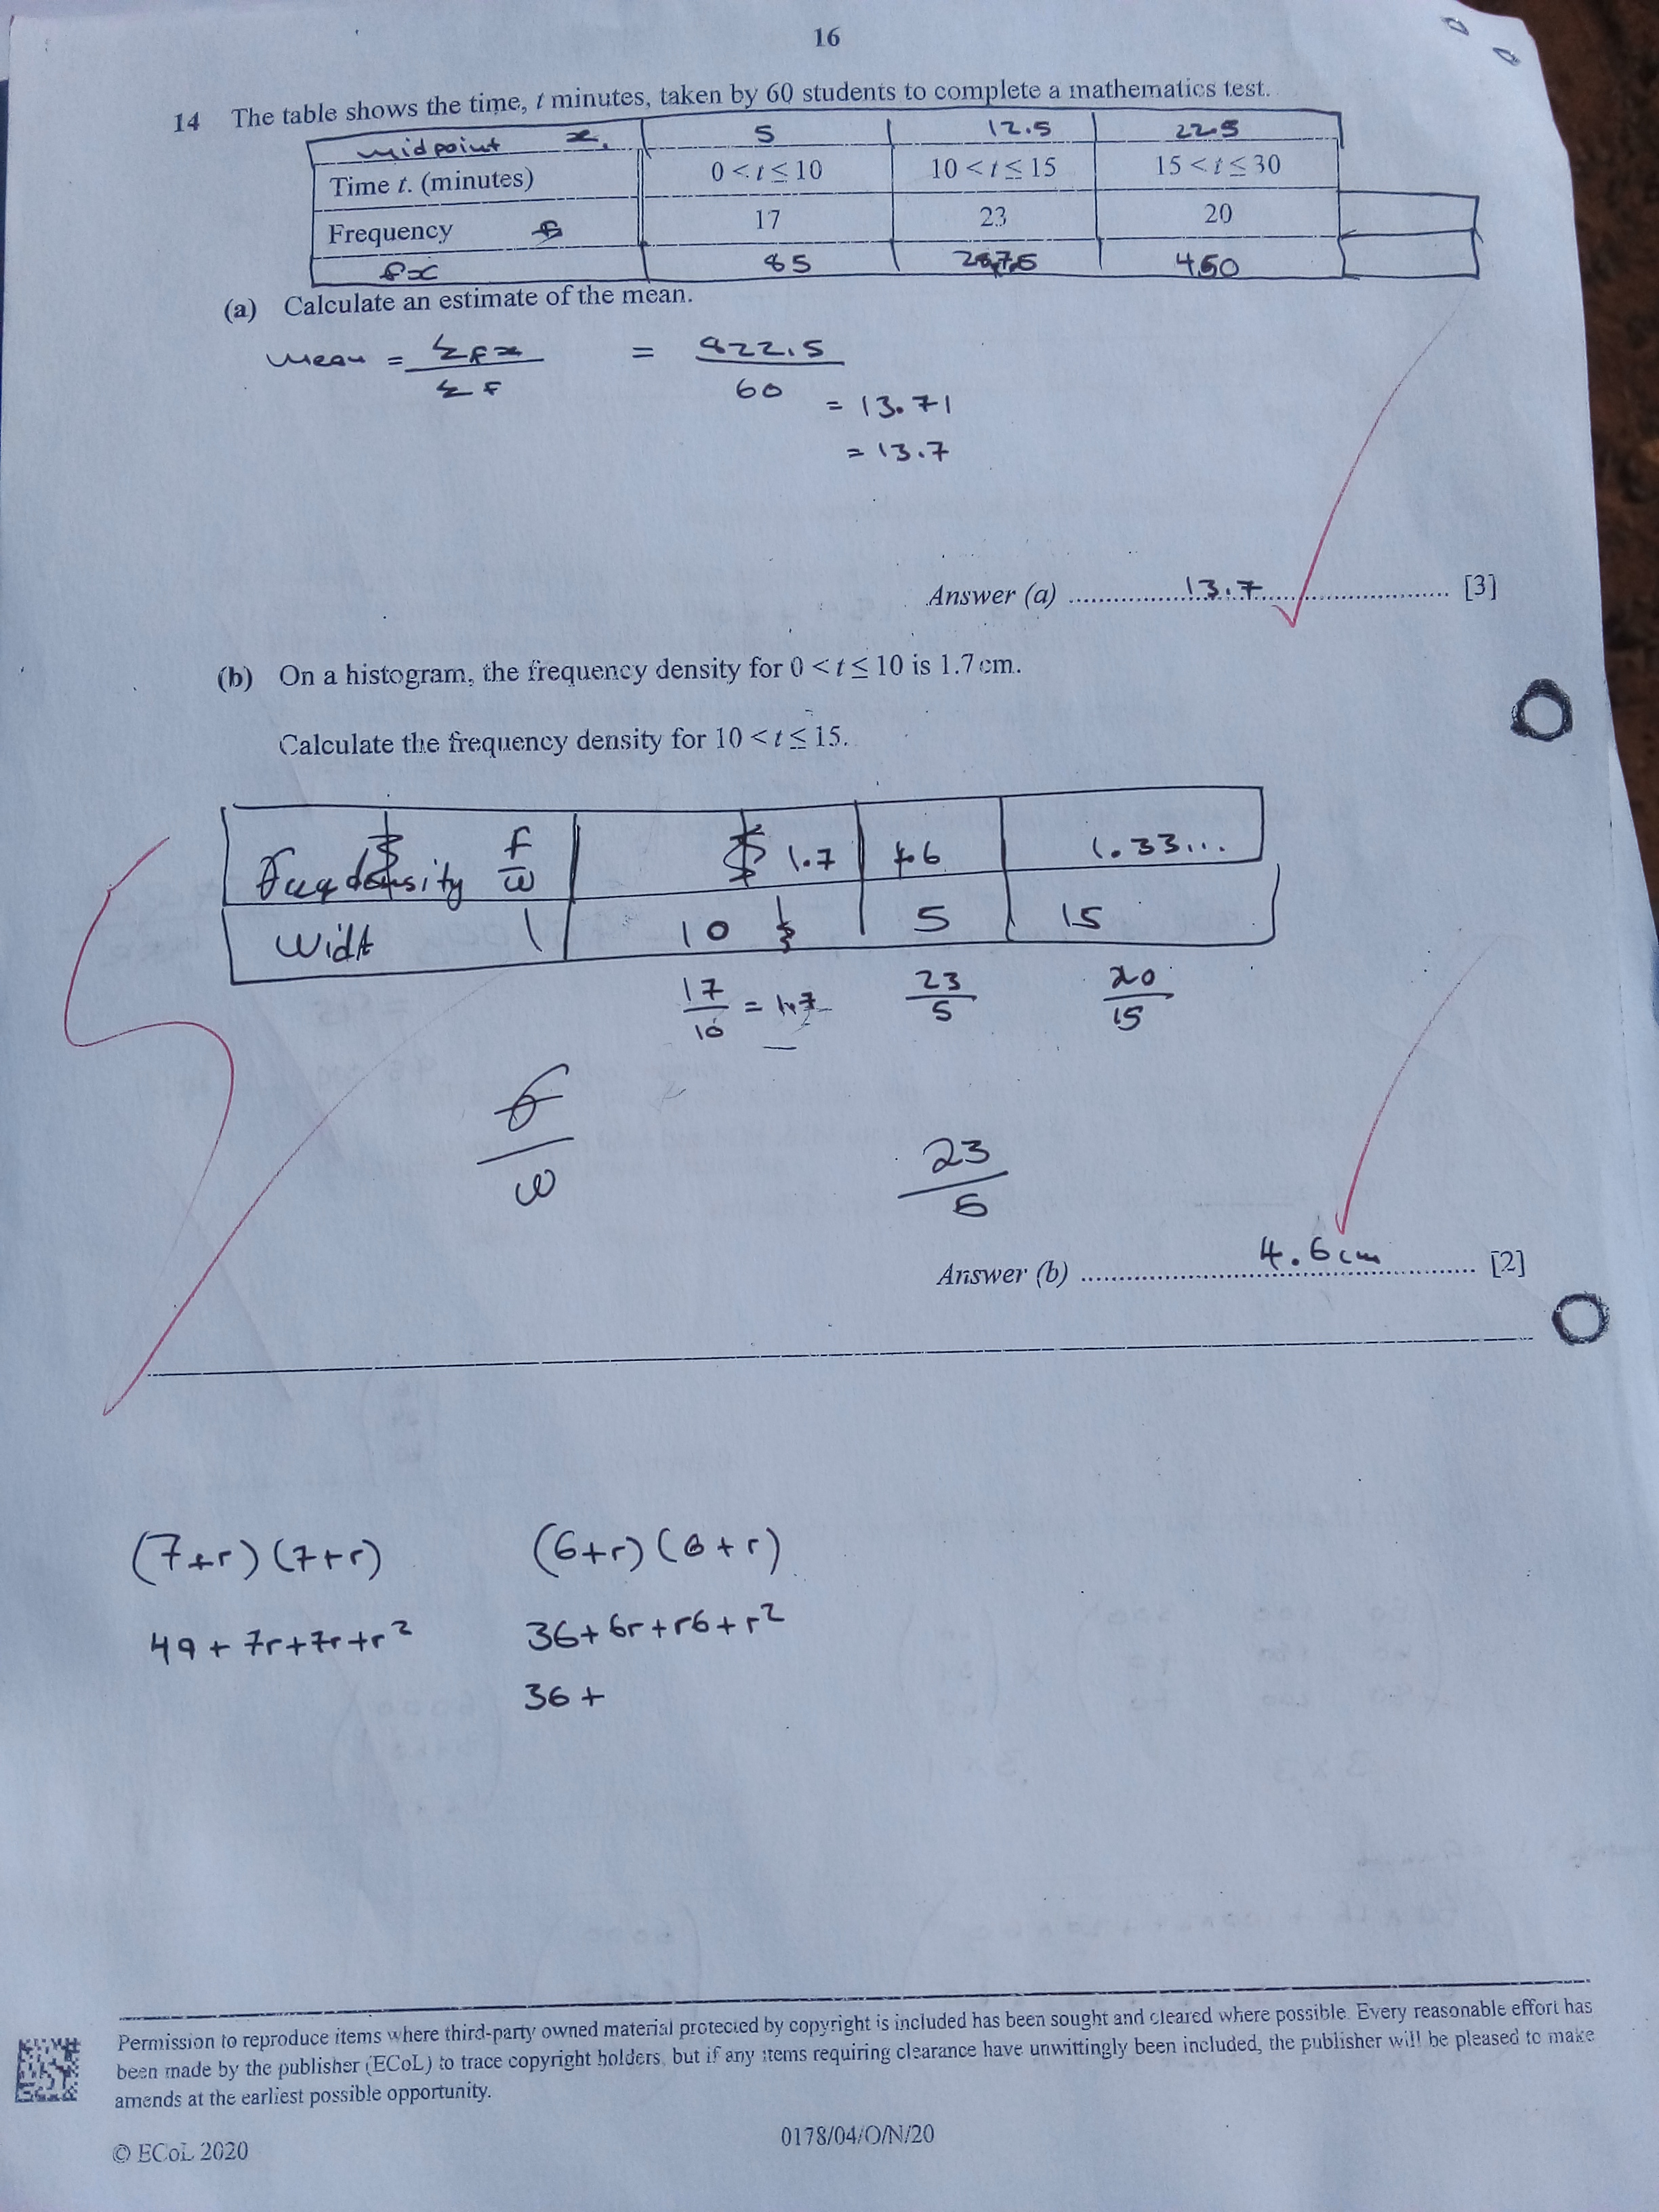 16
14 The table shows the time, t minutes, taken by 60 students to complete a mathematics test.
midpoint x 5 12.5 22.5
Time t. (minutes) 0 < t ≤ 10 10 < t ≤ 15 15 < t ≤ 30
Frequency f 17 23 20
fx 85 287.5 450
(a) Calculate an estimate of the mean.
mean = Σfx / Σf = 822.5 / 60
= 13.71
= 13.7
Answer (a) 13.7 [3]
(b) On a histogram, the frequency density for 0 < t ≤ 10 is 1.7 cm.
Calculate the frequency density for 10 < t ≤ 15.
density f/w 1.7 4.6 1.33...
10 5 15
17/10 = 1.7 23/5 20/15
f/w 23/5
Answer (b) 4.6 cm [2]
(7+r)(7+r) (6+r)(6+r)
49 + 7r + 7r + r² 36 + 6r + r6 + r²
36 +
Permission to reproduce items where third-party owned material protected by copyright is included has been sought and cleared where possible. Every reasonable effort has
been made by the publisher (ECoL) to trace copyright holders, but if any items requiring clearance have unwittingly been included, the publisher will be pleased to make
amends at the earliest possible opportunity.
© ECoL 2020 0178/04/O/N/20